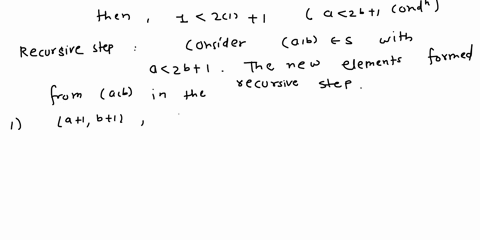 then, 1 < 2(1) + 1 ( a < 2b+1 condⁿ)
Recursive step : Consider (a,b) ∈ S with
a < 2b+1. The new elements formed
from (a,b) in the recursive step.
1) (a+1, b+1),